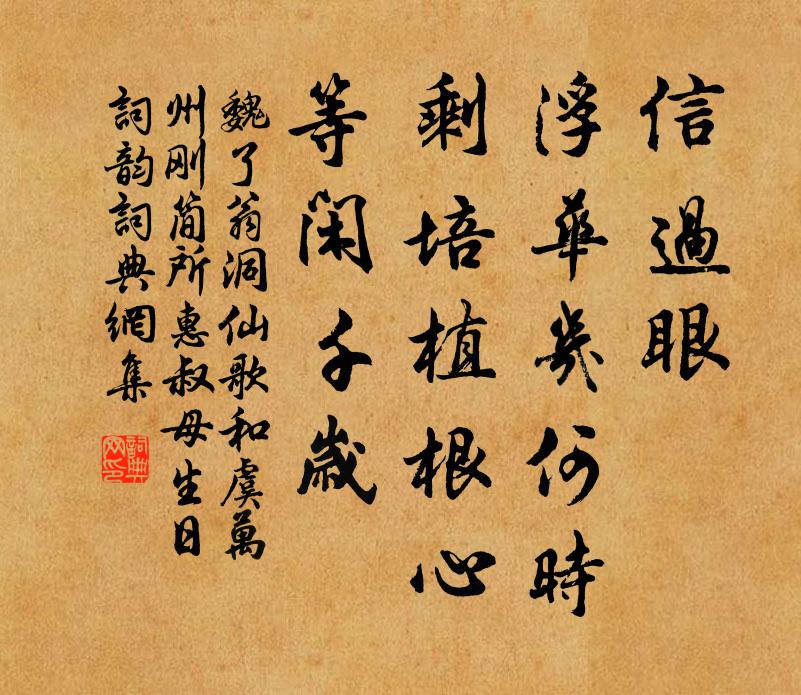 信過眼
浮華幾何時
剩培植根心
等閑千歲
魏了翁洞仙歌和虞萬
州刚简所惠叔母生日
詞韵詞典網集
詞典网印